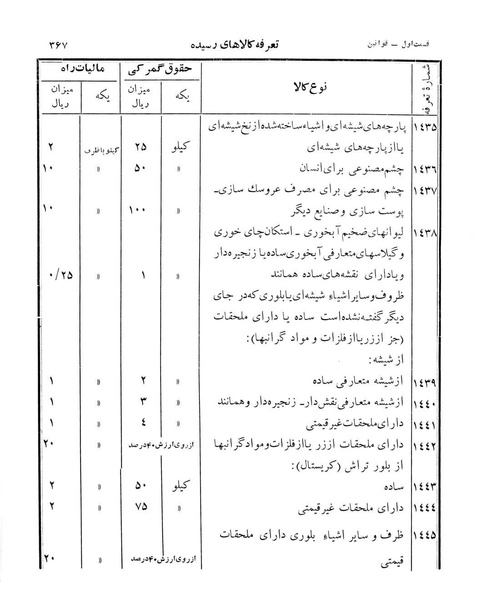 قسمت اول – قوانین
تعرفه کالاهای رسیده
۳۶۷
شمارهٔ تعرفه
نوع کالا
حقوق گمرکی
مالیات راه
یکه
میزان ریال
یکه
میزان ریال
۱۴۳۵ پارچه‌های شیشه‌ای و اشیاء ساخته شده از نخ شیشه‌ای
یا از پارچه‌های شیشه‌ای کیلو ۲۵ کیلو با ظرف ۲
۱۴۳۶ چشم مصنوعی برای انسان » ۵۰ » ۱۰
۱۴۳۷ چشم مصنوعی برای مصرف عروسك سازی –
پوست سازی و صنایع دیگر » ۱۰۰ » ۱۰
۱۴۳۸ لیوانهای ضخیم آبخوری – استکان چای خوری
و گیلاسهای متعارفی آبخوری ساده یا زنجیره دار
و یا دارای نقشه‌های ساده همانند » ۱ » ۰/۲۵
ظروف و سایر اشیاء شیشه‌ای یا بلوری که در جای
دیگر گفته نشده است ساده یا دارای ملحقات
(جز از زر یا از فلزات و مواد گرانبها):
از شیشه:
۱۴۳۹ از شیشه متعارفی ساده » ۲ » ۱
۱۴۴۰ از شیشه متعارفی نقش دار – زنجیره دار و همانند » ۳ » ۱
۱۴۴۱ دارای ملحقات غیر قیمتی » ۴ » ۱
۱۴۴۲ دارای ملحقات از زر یا از فلزات و مواد گرانبها از روی ارزش ۴۰ درصد » ۲۰
از بلور تراش (کریستال):
۱۴۴۳ ساده کیلو ۵۰ » ۲
۱۴۴۴ دارای ملحقات غیر قیمتی » ۷۵ » ۲
۱۴۴۵ ظرف و سایر اشیاء بلوری دارای ملحقات
قیمتی از روی ارزش ۴۰ درصد » ۲۰